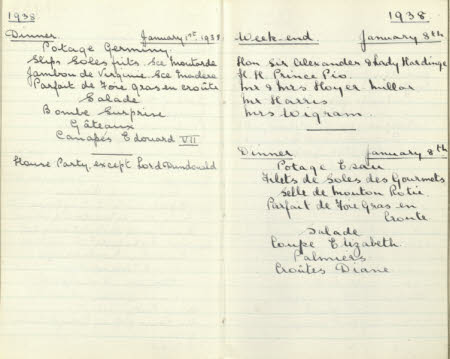 1938
Dinner. January 1st 1938
Potage Germiny
Slips Soles frits. Sce Moutarde
Jambon de Virginie Sce Madere
Parfait de Foie Gras en croûte
Salade
Bombe Surprise
Gâteaux
Canapés Edouard VII
House Party except Lord Dundonald
1938
Week-end. January 8th
Hon Sir Alexander & Lady Hardinge
H H Prince Pio.
Mr & Mrs Hoyer Millar
Mr Harris
Mrs Wigram.
Dinner January 8th
Potage Esau
Filets de Soles des Gourmets
Selle de Mouton Rotie
Parfait de Foie Gras en
Croute
Salade
Coupe Elizabeth
Palmiers
Croûtes Diane